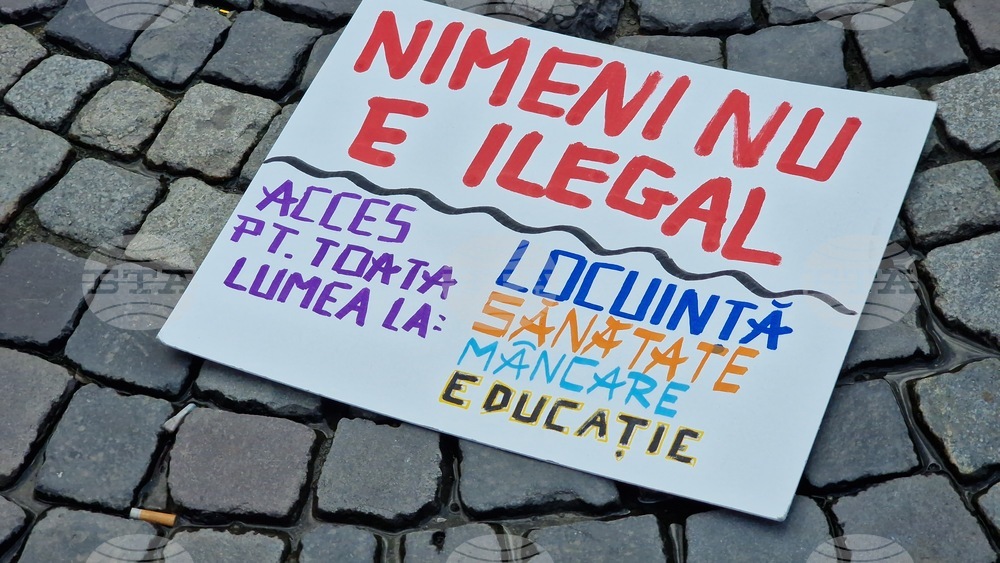 NIMENI NU
E ILEGAL
ACCES
PT. TOATA
LUMEA LA:
LOCUINTĂ
SĂNĂTATE
MÂNCARE
EDUCAȚIE
BTA